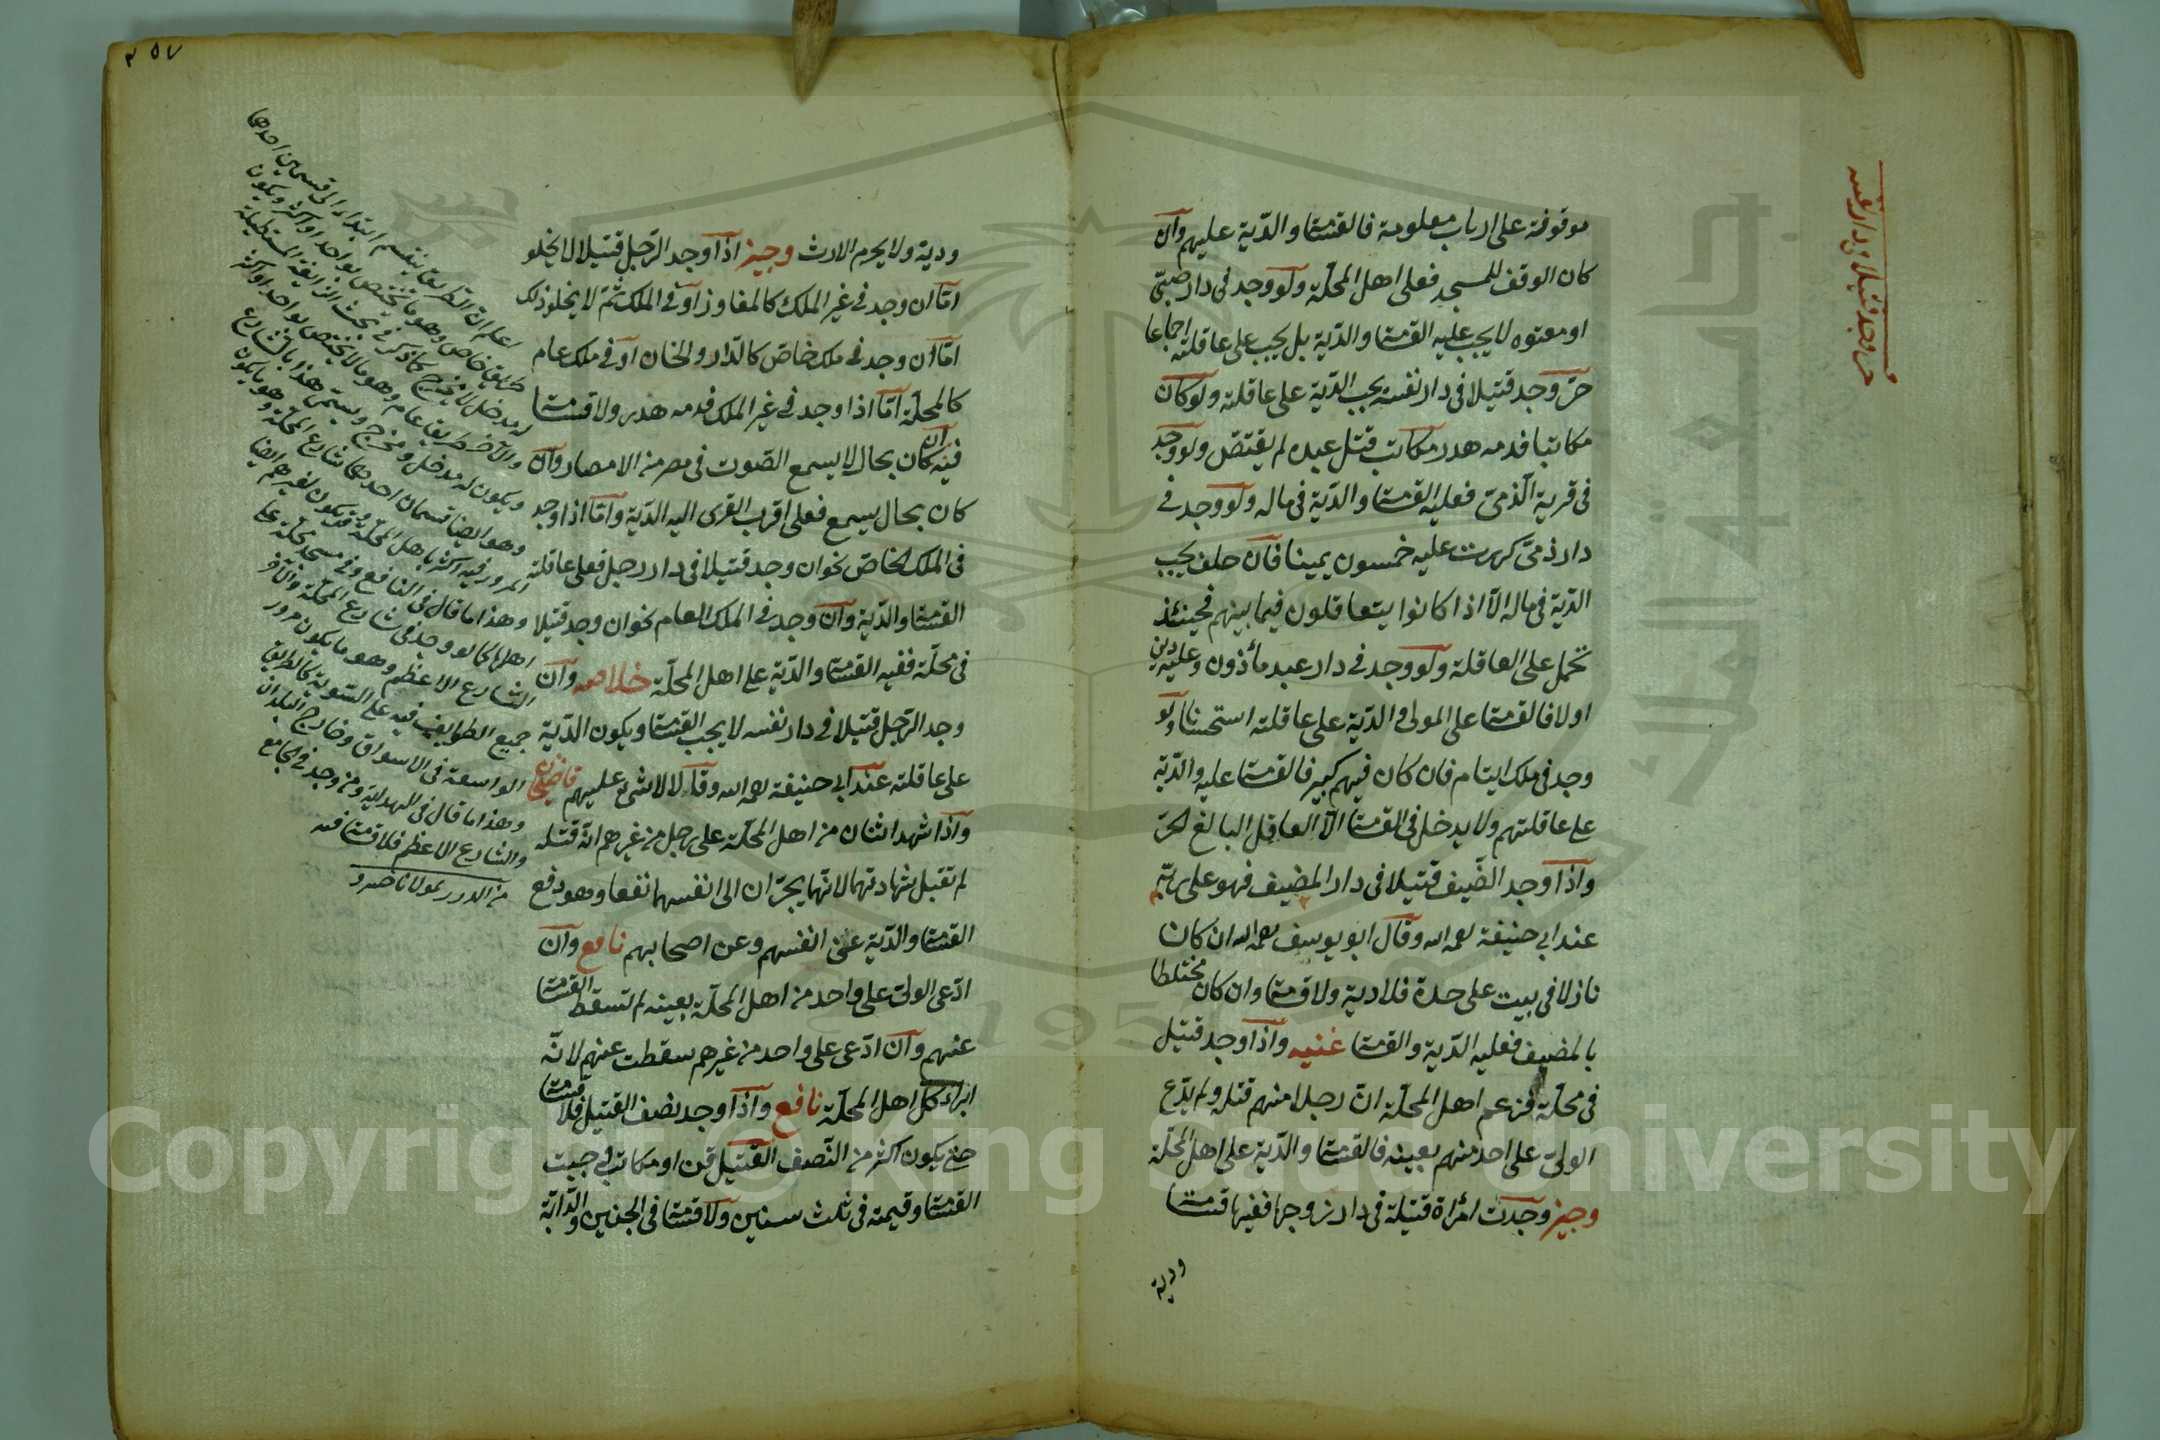 موقوفة على ارباب معلومة فالقسامة والدّية عليهم وان
كان الوقف للمسجد فعلى اهل المحلّة ولو وجد فى دار صبىّ
او معتوه لا يجب عليه القسامة والدّية بل يجب على عاقلته اجماعا
حرّ وجد قتيلا فى دار نفسه يجب الدّية على عاقلته ولو كان
مكاتبا فدمه هدر مكاتب قتل عبده لم يقتصّ ولو وجد
فى قرية الّذمىّ فعليه القسامة والدّية فى ماله ولو وجد فى
دار ذمىّ كررت عليه خمسون يمينا فان حلف يجب
الدّية فى ماله الّا اذا كانوا يتعاقلون فيما بينهم فحينئذ
تحمل على العاقلة ولو وجد فى دار عبد مأذون وعليه دين
اولا فالقسامة على المولى والدّية على عاقلته استحسانا ولو
وجد فى ملك ايتام فان كان فيهم كبير فالقسامة عليه والدّية
على عاقلتهم ولا يدخل فى القسامة الّا العاقل البالغ الحرّ
واذا وجد الضّيف قتيلا فى دار المضيف فهو على ربّه
عند ابى حنيفة رحمه الله وقال ابو يوسف رحمه الله ان كان
نازلا فى بيت على حدة فلا دية ولا قسامة وان كان مختلطا
بالمضيف فعليه الدّية والقسامة غنيه واذا وجد قتيل
فى محلّة فزعم اهل المحلّة انّ رجلا منهم قتله ولم يدّع
الولىّ على احد منهم بعينه فالقسامة والدّية على اهل المحلّة
وجيز وجدت امرأة قتيلة فى دار زوجها ففيها قسامة
ودية
حر وجد قتيلا فى دار نفسه
٢٥٧
ودية ولا يحرم الارث وجيز اذا وجد الرّجل قتيلا لا يخلو
امّا ان وجد فى غير الملك كالمفاوز او فى الملك ثمّ لا يخلو ذلك
امّا ان وجد فى ملك خاصّ كالدّار والخان او فى ملك عام
كالمحلّة امّا اذا وجد فى غير الملك فدمه هدر ولا قسامة
فيه ان كان بحال لا يسمع الصّوت فى مصر من الامصار وان
كان بحال يسمع فعلى اقرب القرى اليه الدّية وامّا اذا وجد
فى الملك الخاصّ نحو ان وجد قتيلا فى دار رجل فعلى عاقلة
القسامة والدّية وان وجد فى الملك العام نحو ان وجد قتيلا
فى محلّة ففيه القسامة والدّية على اهل المحلّة خلاصه وان
وجد الرّجل قتيلا فى دار نفسه لا يجب القسامة ويكون الدّية
على عاقلته عند ابى حنيفة رحمه الله وقالا لا شئ عليهم قاضيخان
واذا شهد اثنان من اهل المحلّة على رجل من غيرهم انّه قتله
لم تقبل شهادتهما لانّهما يجرّان الى انفسهما نفعا وهو دفع
القسامة والدّية عن انفسهم وعن اصحابهم نافع وان
ادّعى الولىّ على واحد من اهل المحلّة بعينه لم تسقط القسامة
عنهم وان ادّعى على واحد من غيرهم سقطت عنهم لانّه
ابراء كل اهل المحلّة نافع واذا وجد نصف القتيل فلا قسامة
حتى يكون اكثر من النّصف القتيل قن او مكاتب وجبت
القسامة وقيمته فى ثلث سنين ولا قسامة فى الجنين والدّابّة
اعلم ان الطريق ينقسم ابتداء الى قسمين احدهما
طريق خاص وهو ما يختص بواحد او اكثر ويكون
له مدخل لا مخرج كما ذكر فى بحث الزايغة المستطيلة
والآخر طريق عام وهو ما لا يختص بواحد او اكثر
ويكون له مدخل ومخرج ويسمى هذا بالشارع
وهو ايضا قسمان احدهما شارع المحلة وهو ما يكون
المرور فيه اكثر باهل المحلة وقد يكون لغيرهم ايضا
وهذا ما قال فى النافع وفى مسجد محلة على
اهلها كما لو وجد فى شارع المحلة والآخر
الشارع الاعظم وهو ما يكون مرور
جميع الطوايف فيه على السوية كالطريق
الواسعة فى الاسواق وخارج البلدان
وهذا ما قال فى الهداية ومن وجد فى الجامع
والشارع الاعظم فلا قسامة فيه
من الدرر لمولانا خسرو
جامعة الملك
1957
Copyright © King Saud University